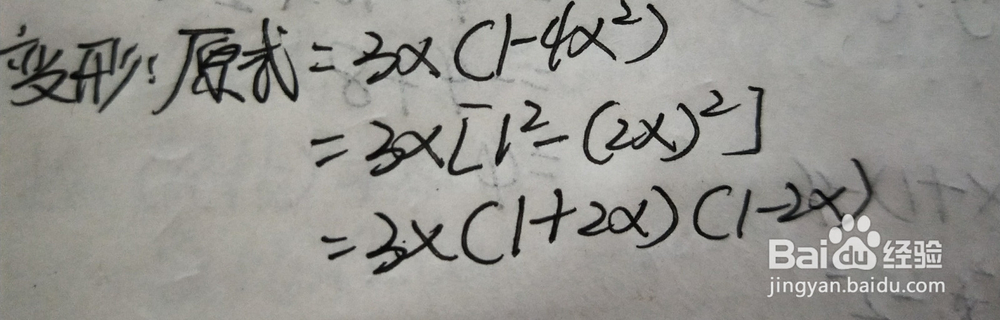 变形:原式=3x(1-4x²)
=3x[1²-(2x)²]
=3x(1+2x)(1-2x)
Baidu经验
jingyan.baidu.com